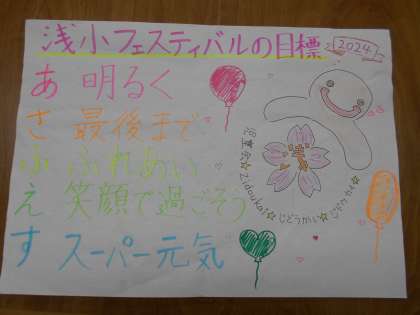 浅小フェスティバルの目標
2024
あ 明るく
さ 最後まで
ふ ふれあい
え 笑顔で過ごそう
す スーパー元気
児童会☆Zidoukai☆じどうかい☆